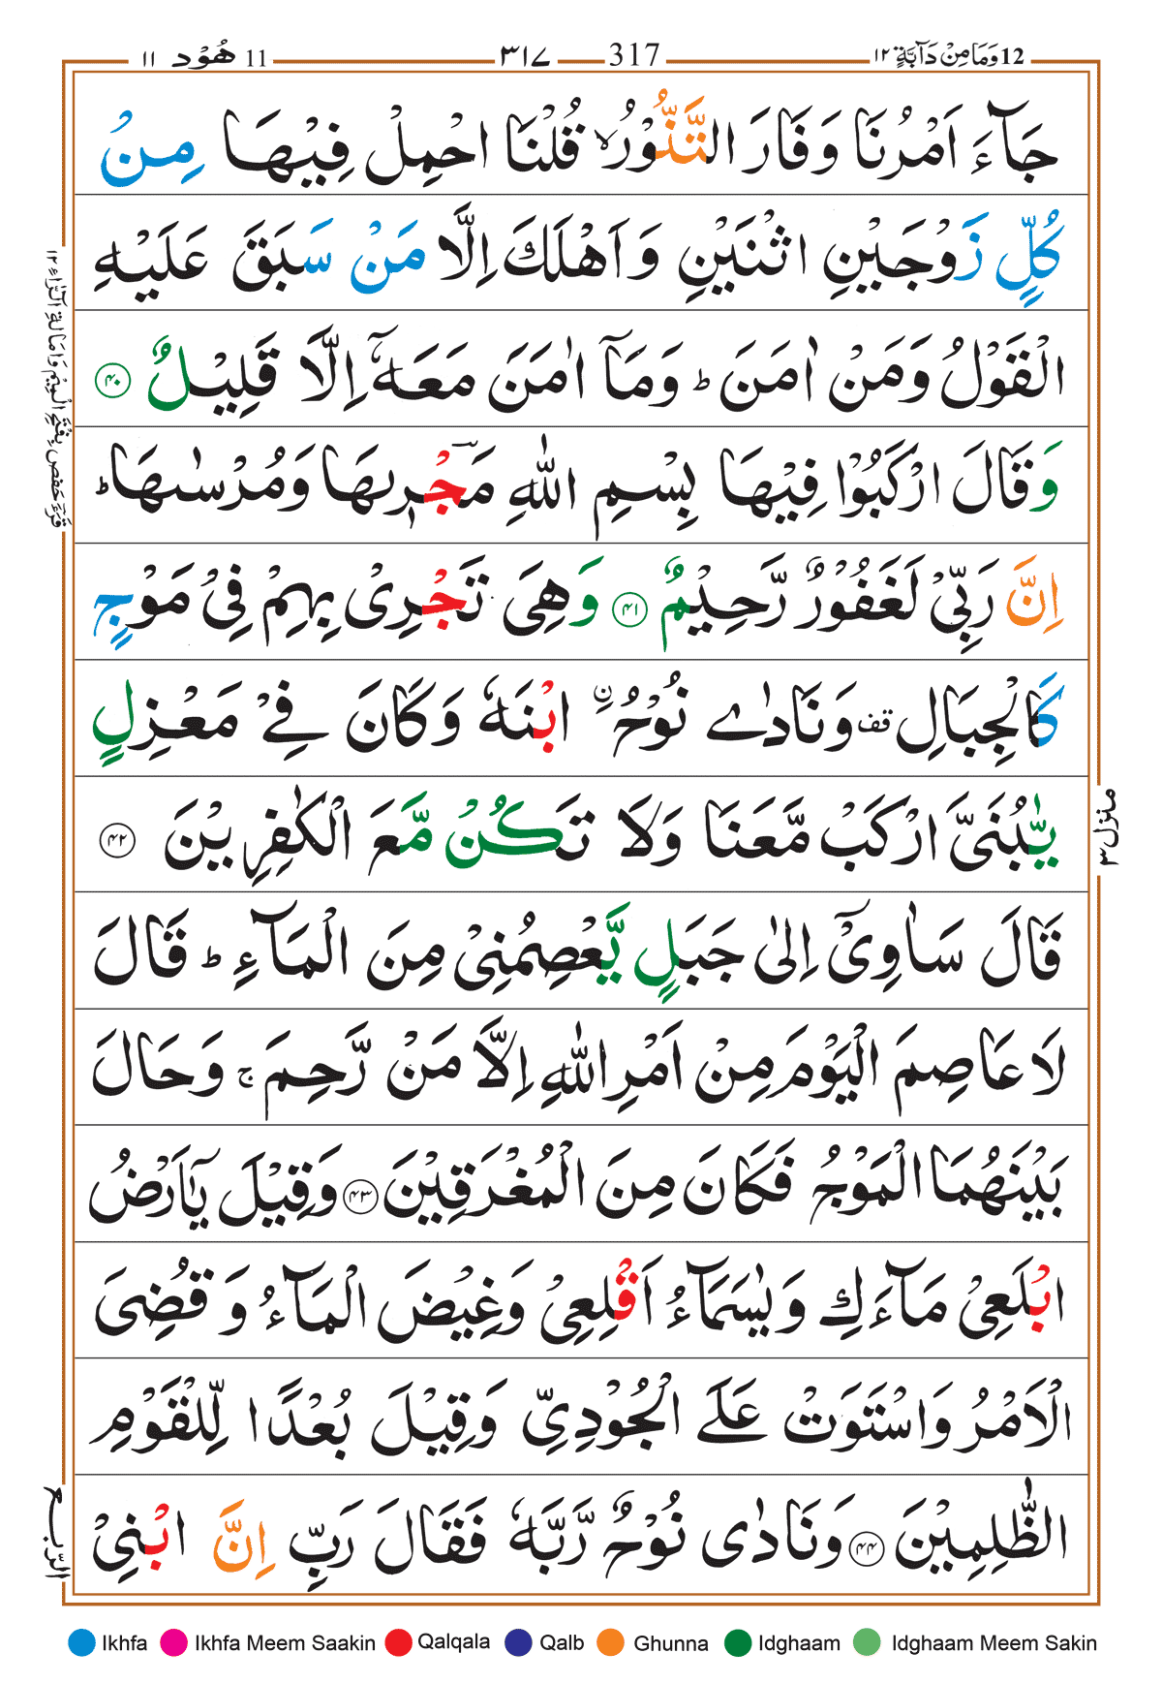 12 وَمَا مِنْ دَآبَّةٍ ١٢
317 ٣١٧
11 هُوْد ١١
جَآءَ اَمْرُنَا وَفَارَ التَّنُّوْرُ ۙ قُلْنَا احْمِلْ فِيْهَا مِنْ
كُلٍّ زَوْجَيْنِ اثْنَيْنِ وَاَهْلَكَ اِلَّا مَنْ سَبَقَ عَلَيْهِ
الْقَوْلُ وَمَنْ اٰمَنَ ؕ وَمَاۤ اٰمَنَ مَعَهٗۤ اِلَّا قَلِيْلٌ ﴿۴۰﴾
وَقَالَ ارْكَبُوْا فِيْهَا بِسْمِ اللّٰهِ مَجْرٖىهَا وَمُرْسٰىهَا ؕ
اِنَّ رَبِّيْ لَغَفُوْرٌ رَّحِيْمٌ ﴿۴۱﴾ وَهِىَ تَجْرِىْ بِهِمْ فِىْ مَوْجٍ
كَالْجِبَالِ قف وَنَادٰى نُوْحُ ۨ ابْنَهٗ وَكَانَ فِىْ مَعْزِلٍ
يّٰبُنَىَّ ارْكَبْ مَّعَنَا وَلَا تَكُنْ مَّعَ الْكٰفِرِيْنَ ﴿۴۲﴾
قَالَ سَاٰوِىْۤ اِلٰى جَبَلٍ يَّعْصِمُنِىْ مِنَ الْمَآءِ ؕ قَالَ
لَا عَاصِمَ الْيَوْمَ مِنْ اَمْرِ اللّٰهِ اِلَّا مَنْ رَّحِمَ ۚ وَحَالَ
بَيْنَهُمَا الْمَوْجُ فَكَانَ مِنَ الْمُغْرَقِيْنَ ﴿۴۳﴾ وَقِيْلَ يٰۤاَرْضُ
ابْلَعِىْ مَآءَكِ وَيٰسَمَآءُ اَقْلِعِىْ وَغِيْضَ الْمَآءُ وَقُضِىَ
الْاَمْرُ وَاسْتَوَتْ عَلَى الْجُوْدِىِّ وَقِيْلَ بُعْدًا لِّلْقَوْمِ
الظّٰلِمِيْنَ ﴿۴۴﴾ وَنَادٰى نُوْحٌ رَّبَّهٗ فَقَالَ رَبِّ اِنَّ ابْنِىْ
قَرَءَ حَفص بِفَتْحِ الْمِيْمِ وَاِمَالَةِ الرَّاءِ ١٢
منزل ٣
الرّبع
Ikhfa Ikhfa Meem Saakin Qalqala Qalb Ghunna Idghaam Idghaam Meem Sakin